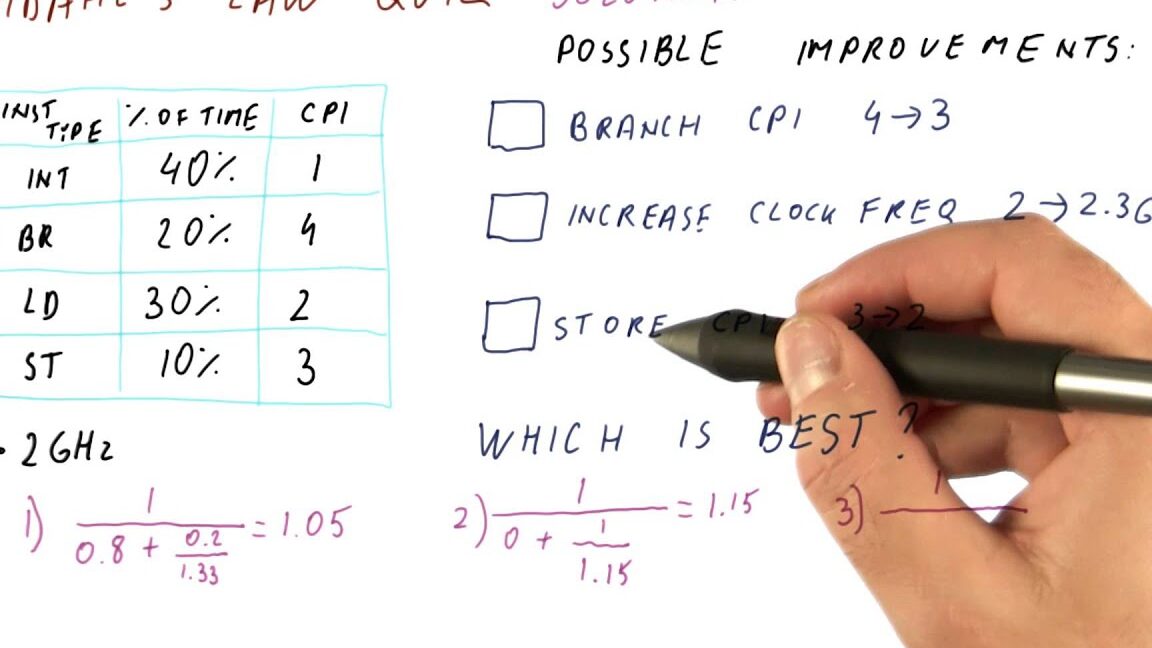 LAW QUIZ
POSSIBLE IMPROVEMENTS:
INST TYPE % OF TIME CPI
INT 40% 1
BR 20% 4
LD 30% 2
ST 10% 3
2GHz
BRANCH CPI 4→3
INCREASE CLOCK FREQ 2→2.3G
STORE CPI 3→2
WHICH IS BEST?
1) 1 / (0.8 + 0.2/1.33) = 1.05
2) 1 / (0 + 1/1.15) = 1.15
3) 1